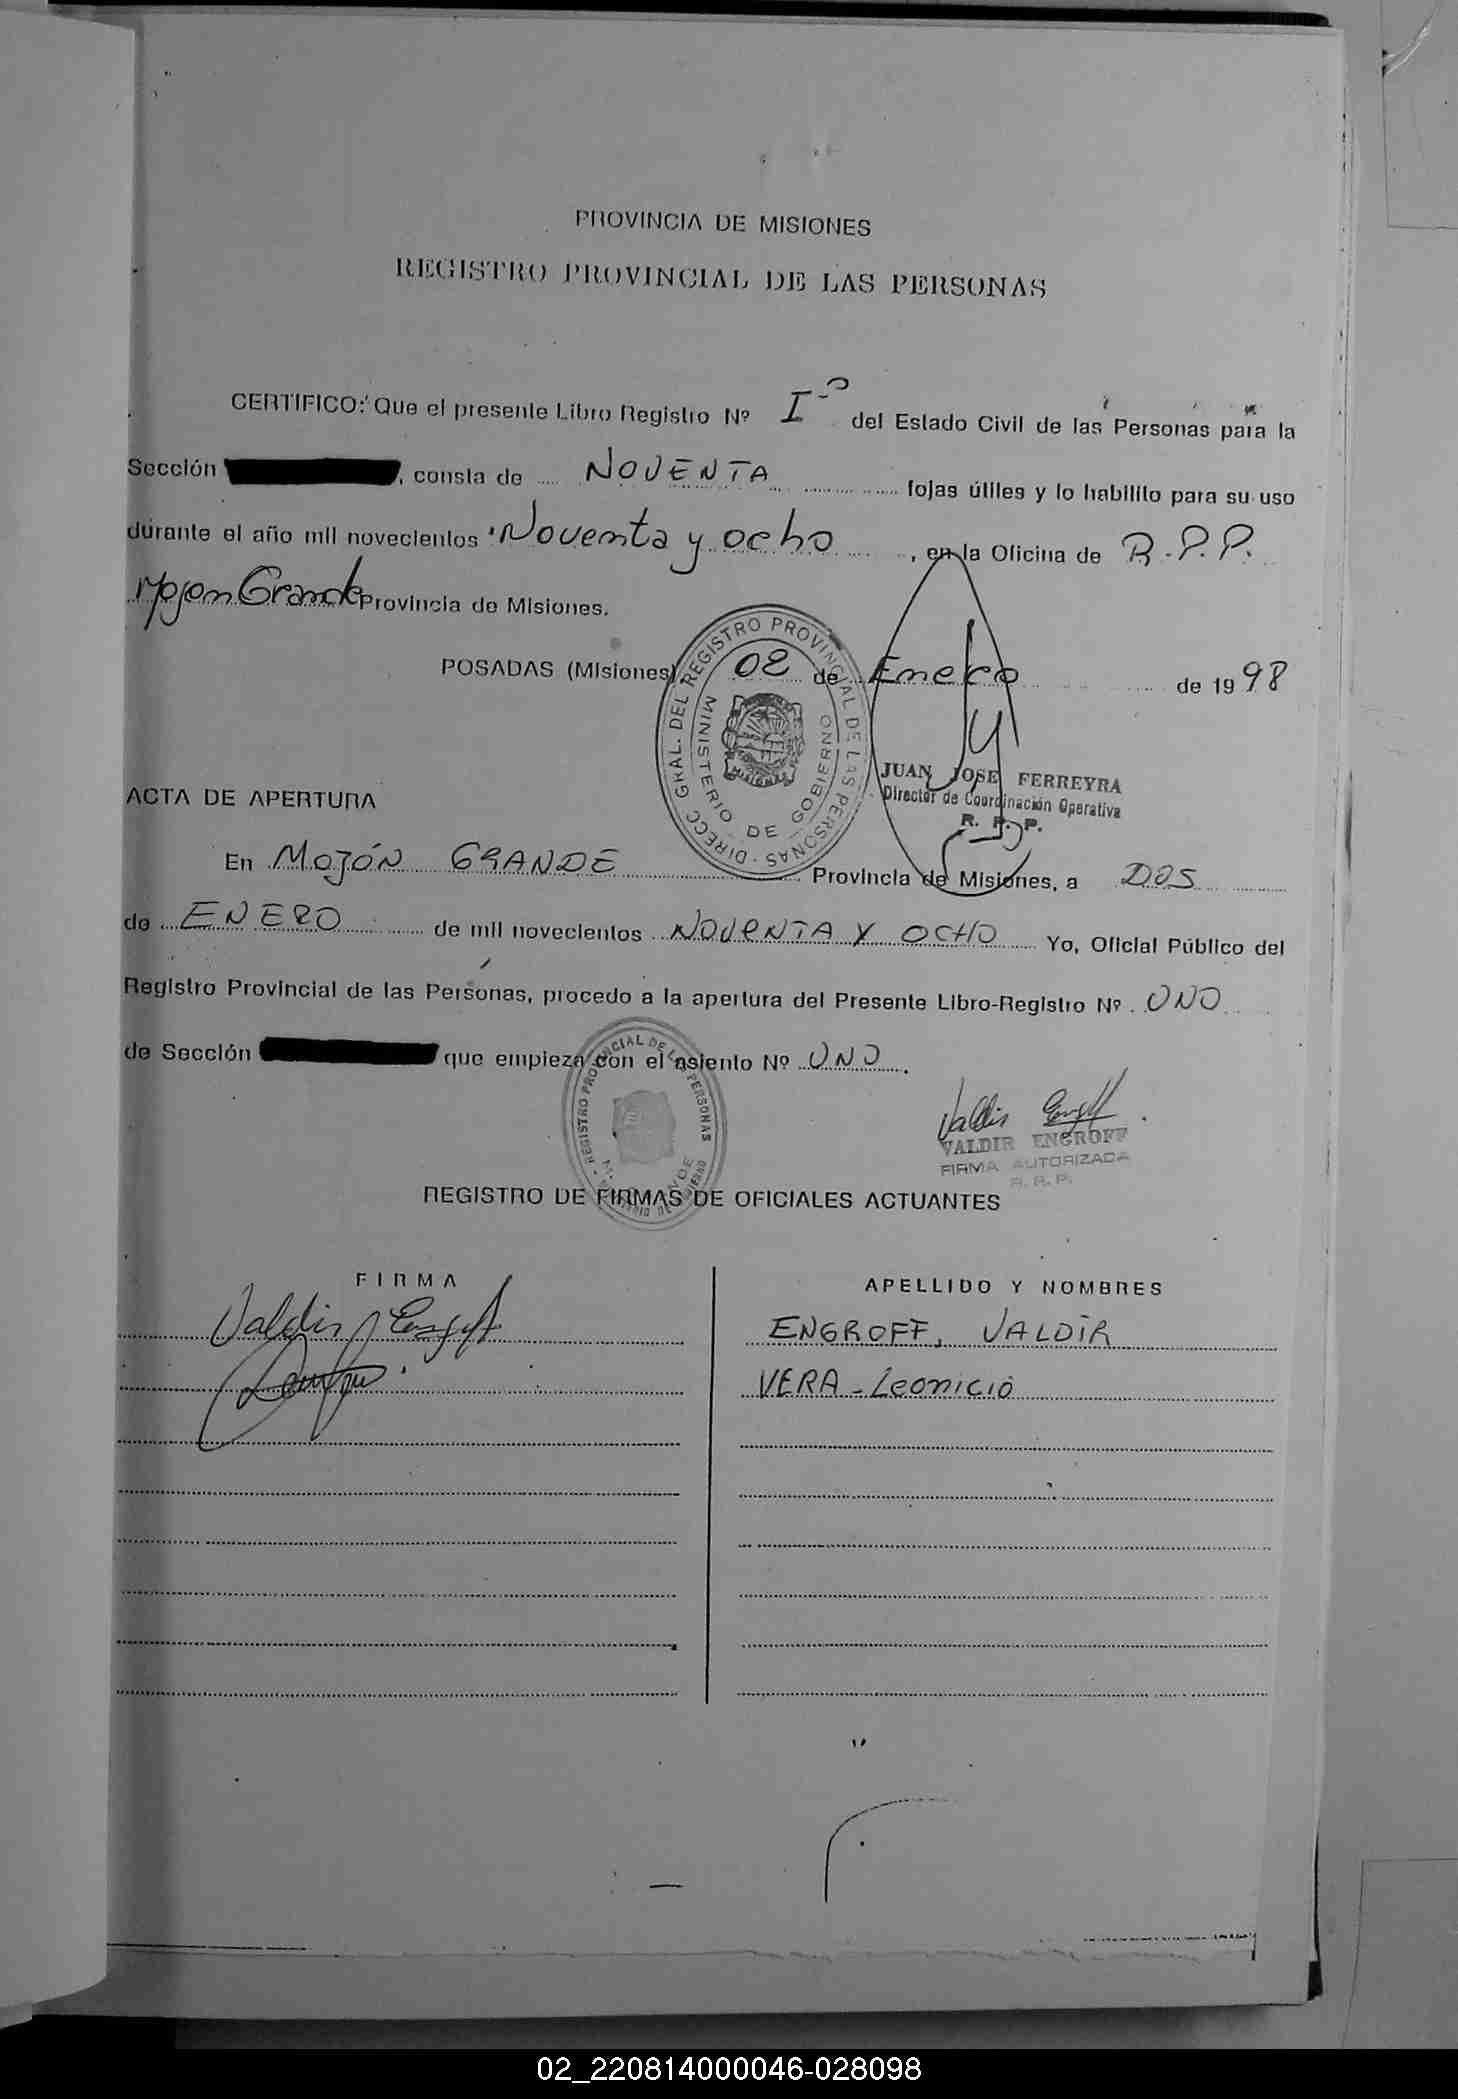 PROVINCIA DE MISIONES
REGISTRO PROVINCIAL DE LAS PERSONAS
CERTIFICO: Que el presente Libro Registro Nº I-º del Estado Civil de las Personas para la
Sección , consta de NOVENTA fojas útiles y lo habilito para su uso
durante el año mil novecientos Noventa y ocho, en la Oficina de R.P.P.
Mojon Grande Provincia de Misiones.
POSADAS (Misiones), 02 de Enero de 1998
DIRECC. GRAL. DEL REGISTRO PROVINCIAL DE LAS PERSONAS
MINISTERIO DE GOBIERNO
MISIONES
JUAN JOSE FERREYRA
Director de Coordinación Operativa
R. P. P.
ACTA DE APERTURA
En MOJÓN GRANDE Provincia de Misiones, a DOS
de ENERO de mil novecientos NOVENTA Y OCHO Yo, Oficial Público del
Registro Provincial de las Personas, procedo a la apertura del Presente Libro-Registro Nº UNO
de Sección que empieza con el asiento Nº UNO.
REGISTRO PROVINCIAL DE LAS PERSONAS
Valdir Engroff
VALDIR ENGROFF
FIRMA AUTORIZADA
R. R. P.
REGISTRO DE FIRMAS DE OFICIALES ACTUANTES
FIRMA
APELLIDO Y NOMBRES
Valdir Engroff
ENGROFF, VALDIR
VERA - Leonicio
02_220814000046-028098